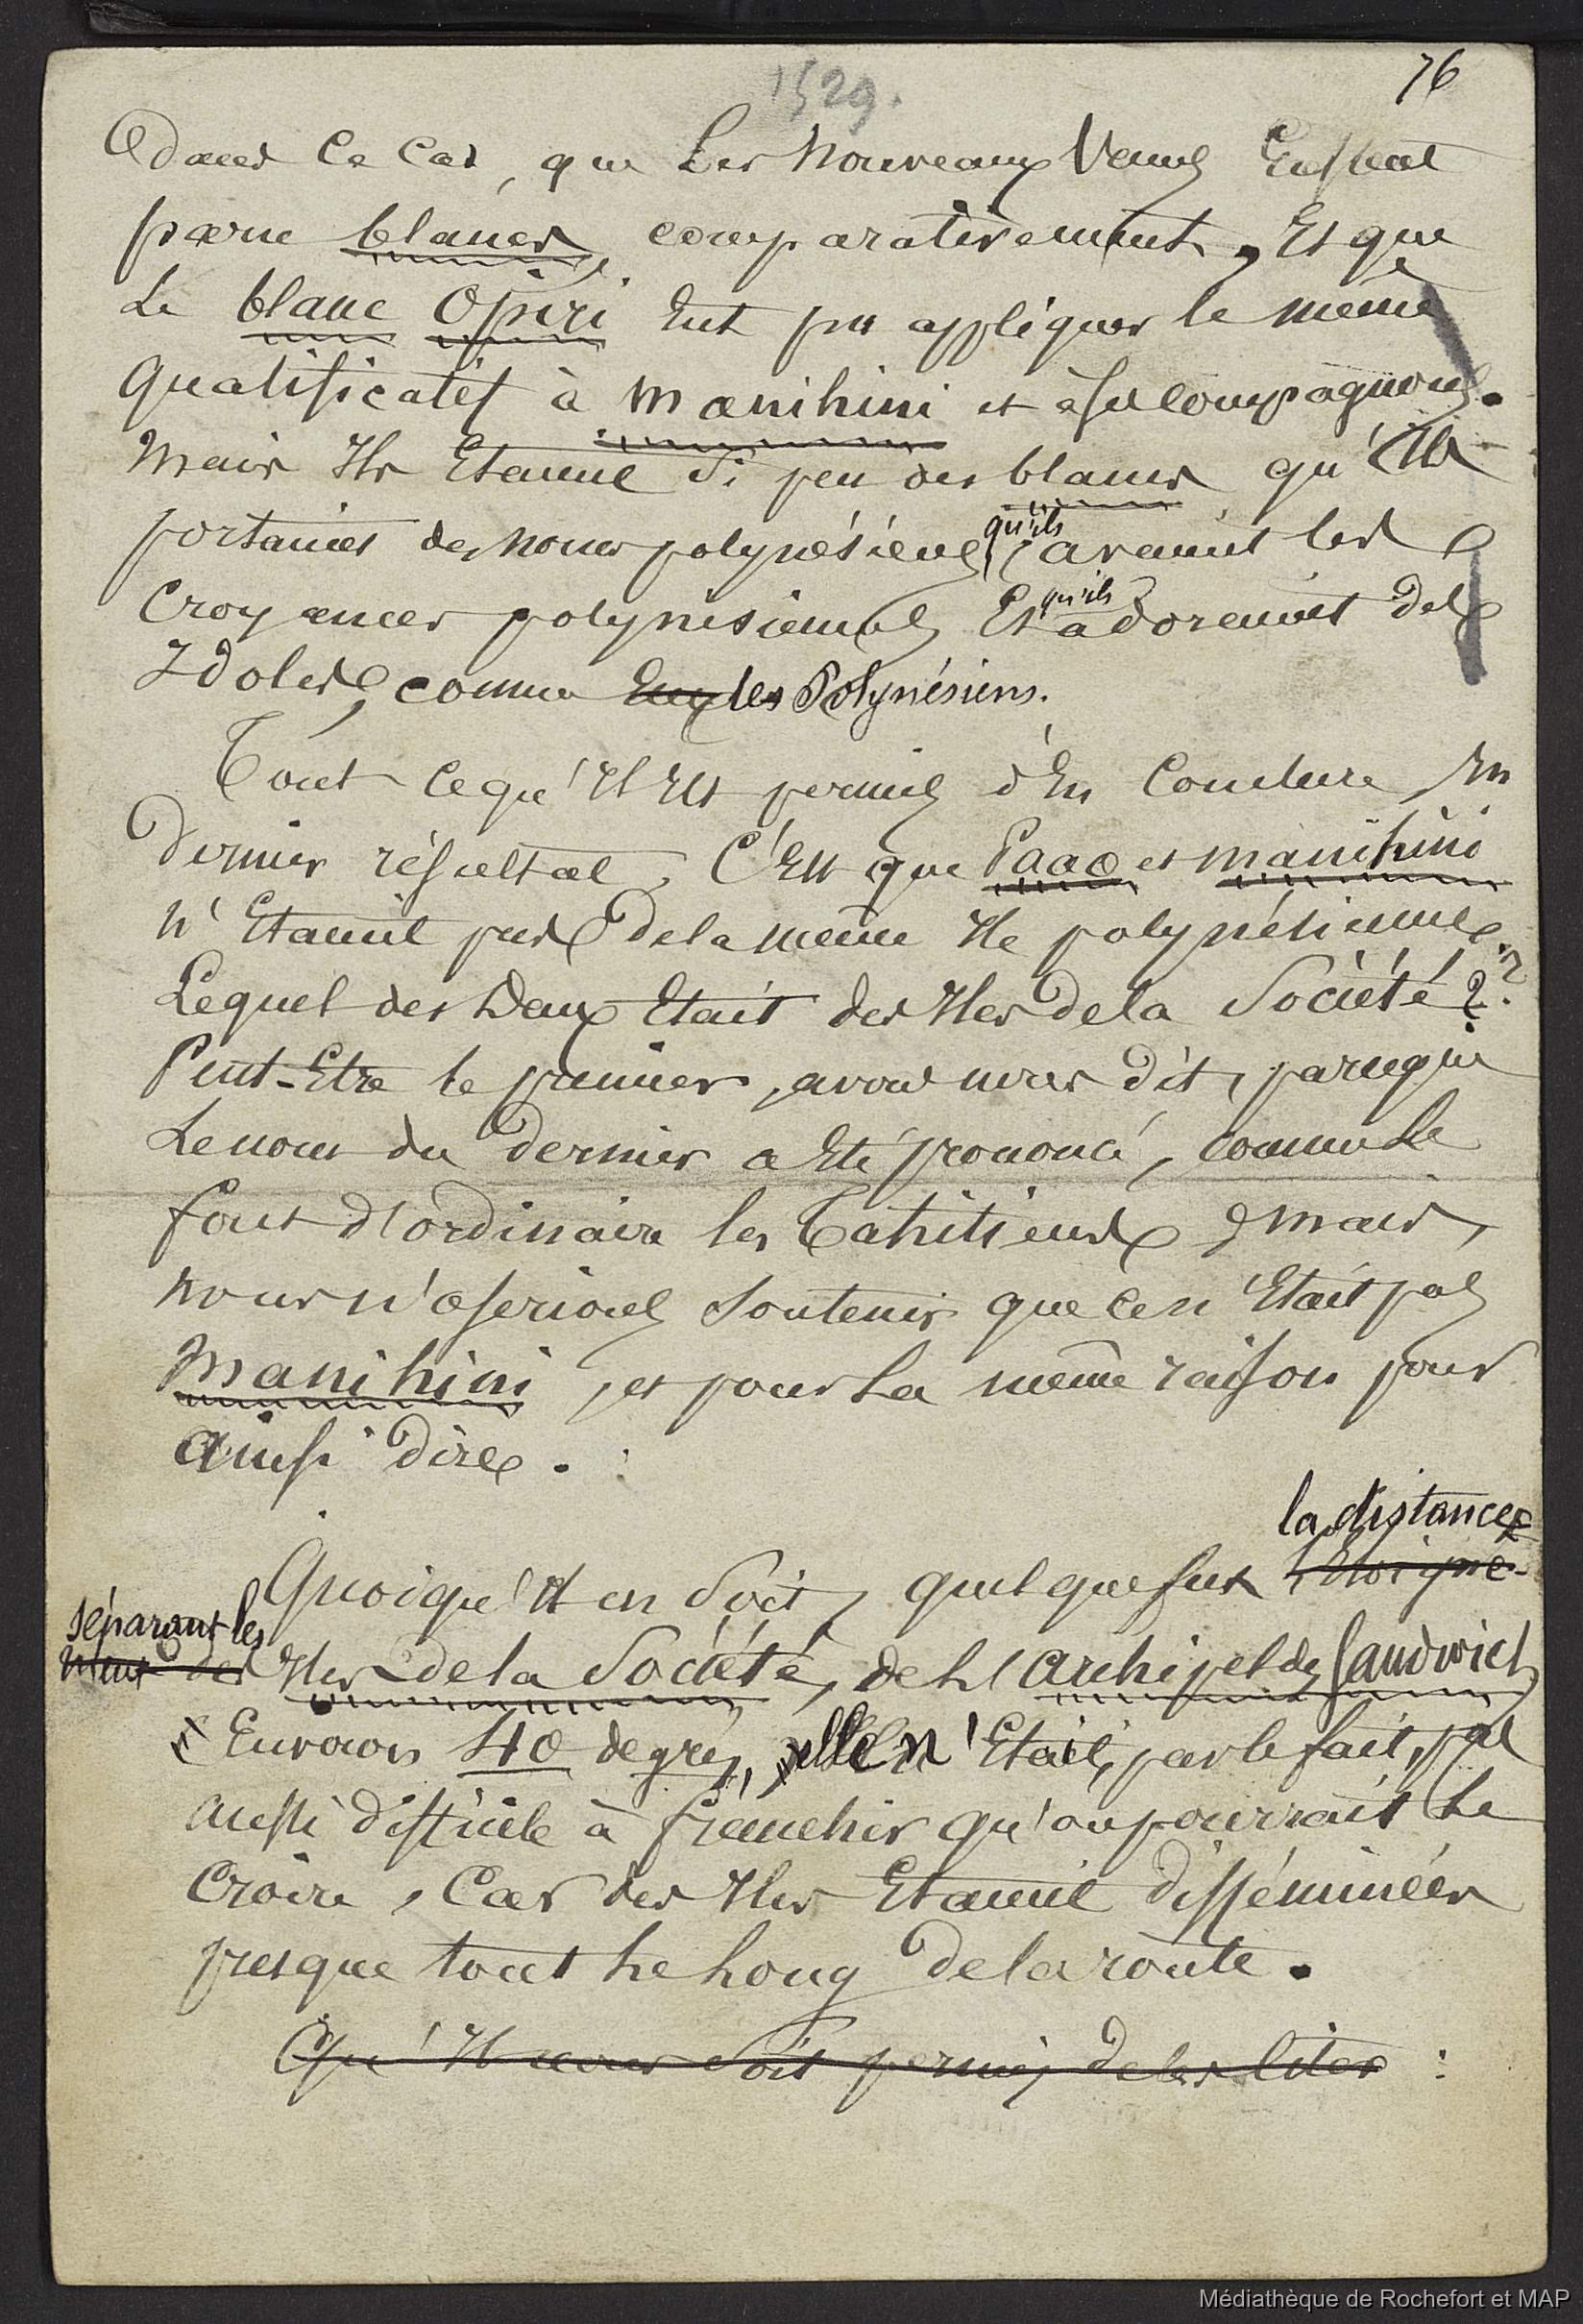 1529.
76
dans ce cas, que les nouveaux venus Eussent
parus blancs, comparativement, Et que
le blanc Opiri Eut pu appliquer le même
qualificatif à Manihini et à ses compagnons.
Mais Ils Etaient si peu des blancs qu'Ils
qu'ils
portaient des noms polynésiens, avaient les
qu'ils
croyances polynésiennes Et adoraient des
Idoles, comme Eux les Polynésiens.
Tout ce qu'Il Est permis d'En conclure En
dernier résultat, C'Est que Paao et Manihini
n'Etaient pas de la même Ile polynésienne.
Lequel des Deux Etait des Iles de la Société ??
Peut-Etre le premier, avons nous dit, parceque
le nom du dernier a Eté prononcé, comme le
font d'ordinaire les Tahitiens ; mais,
nous n'oserions soutenir que ce n'Etait pas
Manihini, et pour la même raison pour
ainsi dire.
la distance
Quoiqu'Il en soit, quelque fut l'Eloigne-
séparant les
ment des Iles de la Société, de l'archipel des Sandwich
Environ 40 degrés, elle n'Etait, par le fait, pas
aussi difficile à franchir qu'on pourrait le
croire, Car des Iles Etaient disséminées
presque tout le long de la route.
Qu'Il nous soit permis de les citer :
Médiathèque de Rochefort et MAP